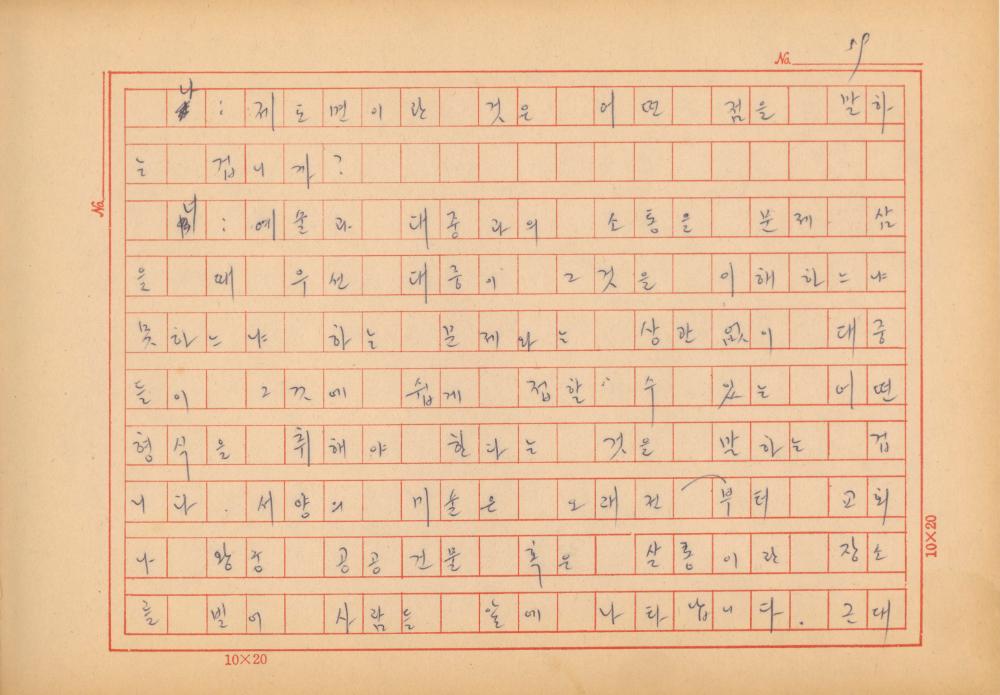 No. 19
나 : 제도면이란 것은 어떤 점을 말하
는 겁니까?
너 : 예술과 대중과의 소통을 문제 삼
을 때 우선 대중이 그것을 이해하느냐
못하느냐 하는 문제와는 상관없이 대중
들이 그것에 쉽게 접할 수 있는 어떤
형식을 취해야 한다는 것을 말하는 겁
니다. 서양의 미술은 오래전 부터 교회
나 왕궁 공공건물 혹은 살롱이란 장소
를 빌어 사람들 앞에 나타납니다. 근대
No.
10×20
10×20